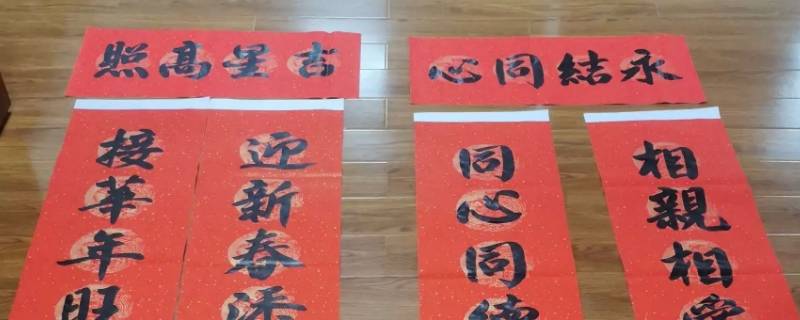 吉星高照
迎新春添
接華年旺
永結同心
相親相愛
同心同德